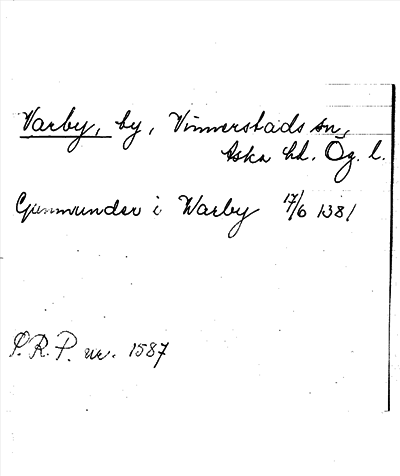 Varby, by, Vinnerstads sn,
Aska hd. Ög. l.
Gunnunder i Warby 17/6 1381
S.R.P. nr. 1587